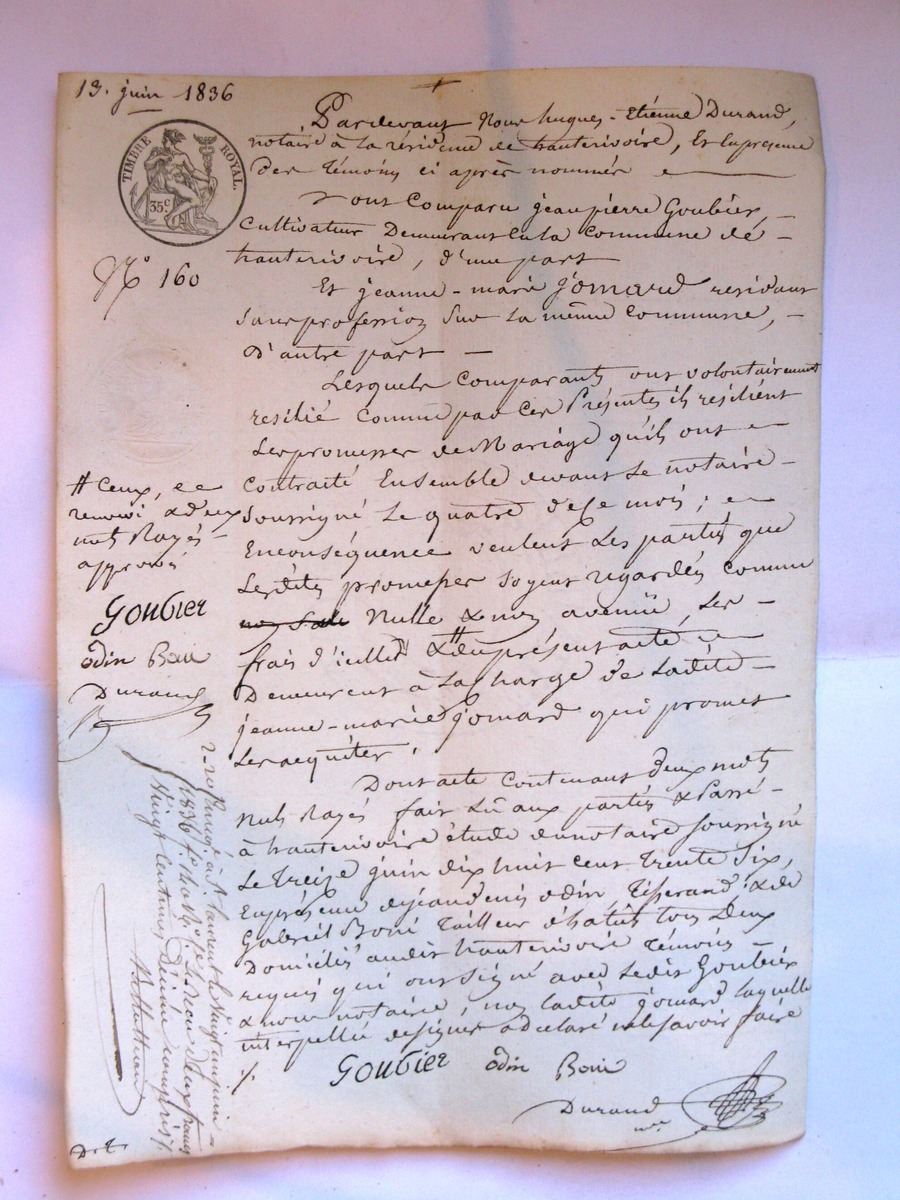 13. juin 1836
TIMBRE ROYAL.
35c.
N° 160
Pardevant Nous hugues-Etienne Durand,
notaire à la résidence de hauterivoire, Et en presence
des témoins ci après nommés
Sont Comparu jeanpierre Goubier,
Cultivateur Demeurant En la commune de
hauterivoire, d'une part
Et jeanne-marie jomard residant
Sans profession Sur la même commune,
D'autre part
Lesquels comparants ont volontairement
resilié comme par Ces Présentes ils resilient
Les promesses de Mariage qu'ils ont
contraité Ensemble devant Le notaire
Soussigné Le quatre de ce mois; et
Enconséquence veulent Les partiés que
Lesdites promesses Soyent regardés comme
Nulle & non avenüe, Les
frais d'icelles & # du présent acte
Demeurent à La charge de Ladite
jeanne-marie jomard qui promet
Les acquiter.
Dont acte contenant deux mots
Nuls Rayés fait Lû aux partiés & Passé
à hauterivoire étude du notaire Soussigné
Le Treize juin dix huit cent trente Six,
En présence de jeandenis odin Tisserand & de
Gabriel Boni Tailleur d'habits tous Deux
Domiciliés audit hauterivoire Témoins
requis qui ont Signé avec Ledit Goubier
& nous notaire, non Ladite jomard laquelle
interpellée de signer a déclaré ne le savoir faire
Goubier odin Boni
Durand
nre
# Ceux, et
renvoi & deux
mots Rayés
approuvés
Goubier
odin Boni
Durand
à St Laurent le vingt un juin
1836 Recu deux francs
Vingt centimes Décime compris